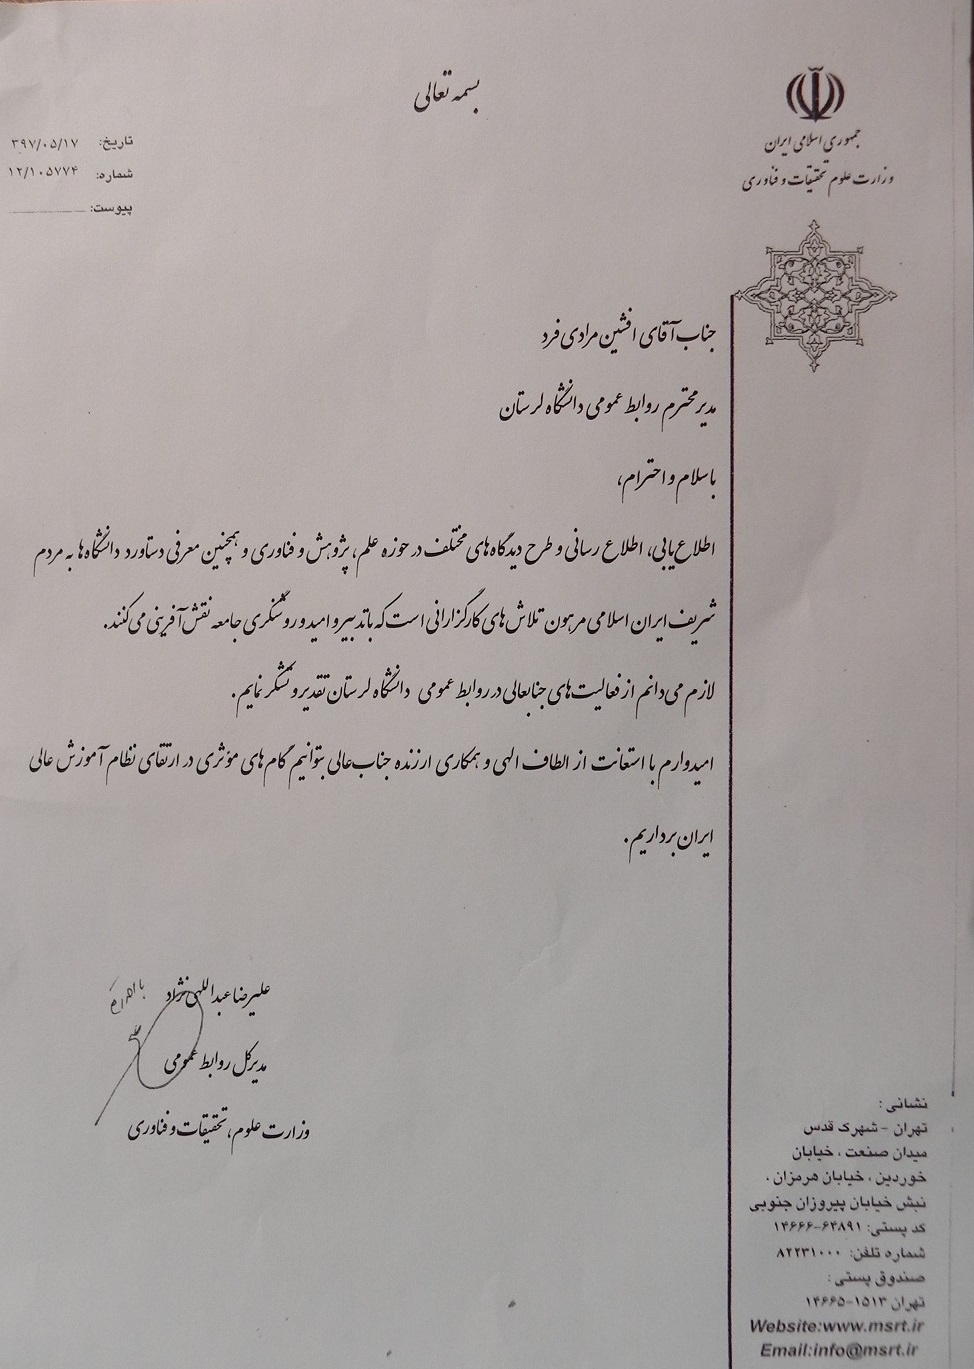 بسمه تعالی
جمهوری اسلامی ایران
وزارت علوم تحقیقات و فناوری
تاریخ: ۳۹۷/۰۵/۱۷
شماره: ۱۲/۱۰۵۷۷۴
پیوست:
جناب آقای افشین مرادی فرد
مدیر محترم روابط عمومی دانشگاه لرستان
با سلام و احترام،
اطلاع‌یابی، اطلاع رسانی و طرح دیدگاه‌های مختلف در حوزه علم، پژوهش و فناوری و همچنین معرفی دستاورد دانشگاه‌ها به مردم
شریف ایران اسلامی مرهون تلاش‌های کارگزارانی است که با تدبیر و امید و روشنگری جامعه نقش آفرینی می‌کنند.
لازم می‌دانم از فعالیت‌های جنابعالی در روابط عمومی دانشگاه لرستان تقدیر و تشکر نمایم.
امیدوارم با استعانت از الطاف الهی و همکاری ارزنده جناب‌عالی بتوانیم گام‌های مؤثری در ارتقای نظام آموزش عالی
ایران برداریم.
علیرضا عبداللهی نژاد
با احترام
مدیرکل روابط عمومی
وزارت علوم، تحقیقات و فناوری
نشانی:
تهران - شهرک قدس
میدان صنعت، خیابان
خوردین، خیابان هرمزان،
نبش خیابان پیروزان جنوبی
کد پستی: ۶۴۸۹۱-۱۴۶۶۶
شماره تلفن: ۸۲۲۳۱۰۰۰
صندوق پستی:
تهران ۱۵۱۳-۱۴۶۶۵
Website:www.msrt.ir
Email:info@msrt.ir